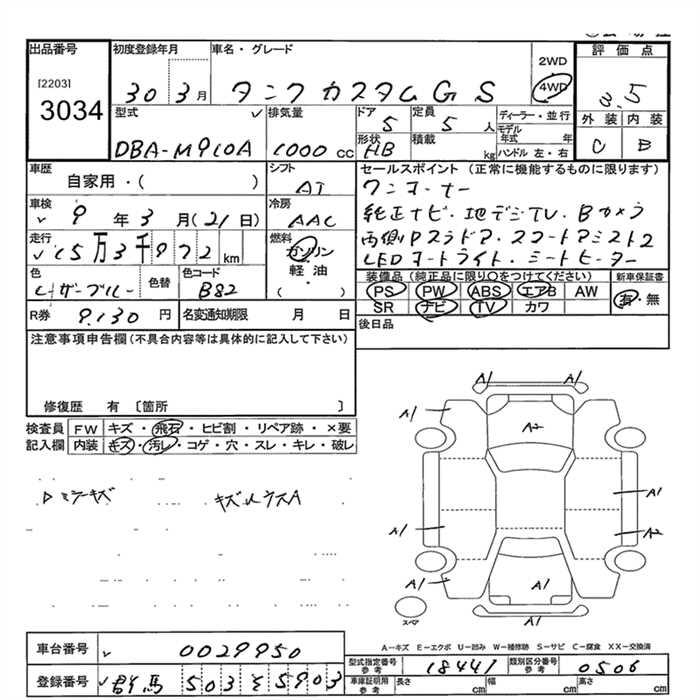 出品番号 初度登録年月 車名・グレード 評価点
[2203] 3034
30 3月 タンク カスタム G S 2WD 4WD 3.5
型式 排気量 ドア 5 定員 5人 ディーラー・並行 外装 内装
DBA-M910A 1000cc 形状 HB 積載 kg モデル年式 年 ハンドル 左・右 C B
車歴 自家用・( ) シフト AT
セールスポイント(正常に機能するものに限ります)
ワンオーナー
車検 9年3月(21日) 冷房 AAC
純正ナビ・地デジTV・Bカメラ
走行 15万3千972km 燃料 ガソリン 軽油・( )
両側Pスラドア・スマートアシスト2
LEDオートライト・シートヒーター
色 レーザーブルー 色替 色コード B82
装備品(純正品に限り○をつけてください) 新車保証書
PS PW ABS エアB AW 有・無
SR ナビ TV カワ
R券 9,130円 名変通知期限 月 日
後日品
注意事項申告欄(不具合内容等は具体的に記入して下さい)
修復歴 有 〔箇所 〕
検査員 FW キズ・飛石・ヒビ割・リペア跡・×要
記入欄 内装 キズ・汚レ・コゲ・穴・スレ・キレ・破レ
A1 A1
A1
A2
ミラーキズ キズ
A1
A1
A2
A1 A1
スペア
A1
A-キズ E-エクボ U-凹み W-補修跡 S-サビ C-腐食 XX-交換済
車台番号 0029950
型式指定番号 参考 18441 類別区分番号 参考 0506
登録番号 群馬 503 そ 5903
車庫証明用 参考 長さ cm 幅 cm 高さ cm